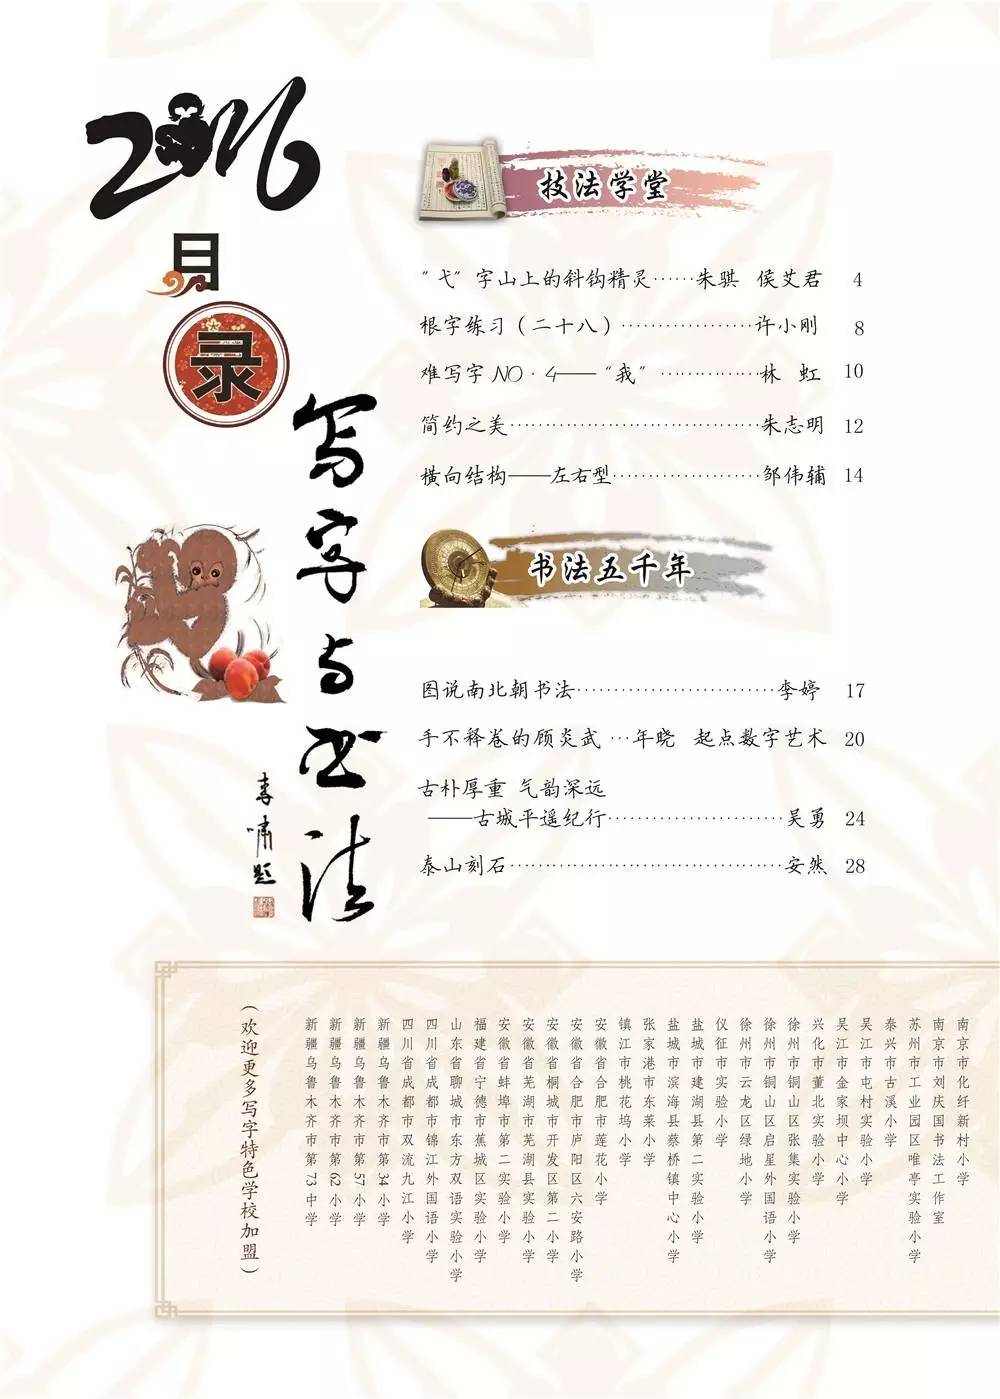 2016
目
录
写字与书法
李啸题
技法学堂
“弋”字山上的斜钩精灵……朱骐 侯艾君 4
根字练习（二十八）………………许小刚 8
难写字NO·4——“我”……………林 虹 10
简约之美………………………………朱志明 12
横向结构——左右型…………………邹伟辅 14
书法五千年
图说南北朝书法………………………李婷 17
手不释卷的顾炎武 …年晓 起点数字艺术 20
古朴厚重 气韵深远
——古城平遥纪行……………………吴勇 24
泰山刻石………………………………安然 28
南京市化纤新村小学
南京市刘庆国书法工作室
苏州市工业园区唯亭实验小学
泰兴市古溪小学
吴江市屯村实验小学
吴江市金家坝中心小学
兴化市董北实验小学
徐州市铜山区张集实验小学
徐州市铜山区启星外国语小学
徐州市云龙区绿地小学
仪征市实验小学
盐城市建湖县第二实验小学
盐城市滨海县蔡桥镇中心小学
张家港市东莱小学
镇江市桃花坞小学
安徽省合肥市莲花小学
安徽省合肥市庐阳区六安路小学
安徽省桐城市开发区第二小学
安徽省芜湖市芜湖县实验小学
安徽省蚌埠市第二实验小学
福建省宁德市蕉城区实验小学
山东省聊城市东方双语实验小学
四川省成都市锦江外国语小学
四川省成都市双流九江小学
新疆乌鲁木齐市第34小学
新疆乌鲁木齐市第57小学
新疆乌鲁木齐市第62小学
新疆乌鲁木齐市第73中学
（欢迎更多写字特色学校加盟）